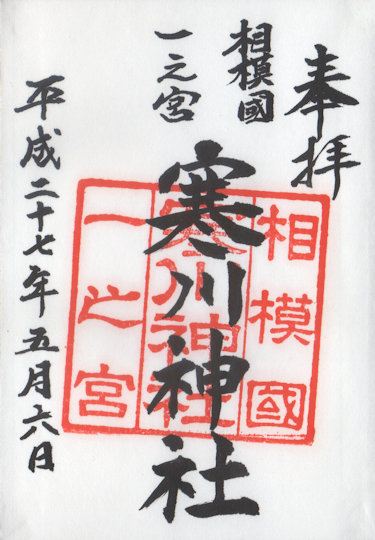 奉拝
相模國
一之宮
寒川神社
平成二十七年五月六日
相模國
寒川神社
一之宮